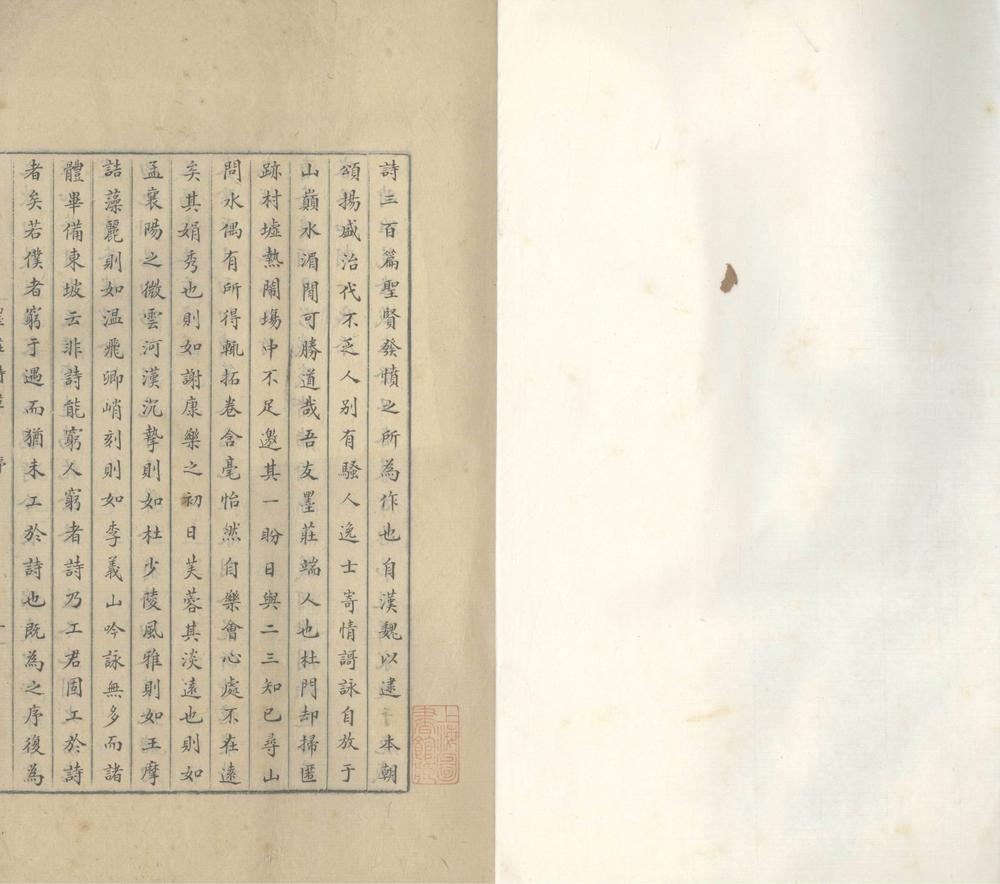 詩三百篇聖賢發憤之所為作也自漢魏以逮于本朝
頌揚盛治代不乏人別有騷人逸士寄情謌詠自放于
山巔水湄間可勝道哉吾友墨莊端人也杜門却掃匿
跡村墟熱鬧場中不足邀其一盼日與二三知己尋山
問水偶有所得輒拓卷含毫怡然自樂會心處不在遠
矣其娟秀也則如謝康樂之初日芙蓉其淡遠也則如
孟襄陽之微雲河漢沉摯則如杜少陵風雅則如王摩
詰藻麗則如温飛卿峭刻則如李義山吟詠無多而諸
體畢備東坡云非詩能窮人窮者詩乃工君固工於詩
者矣若僕者窮于遇而猶未工於詩也既為之序復為
上海圖書館藏